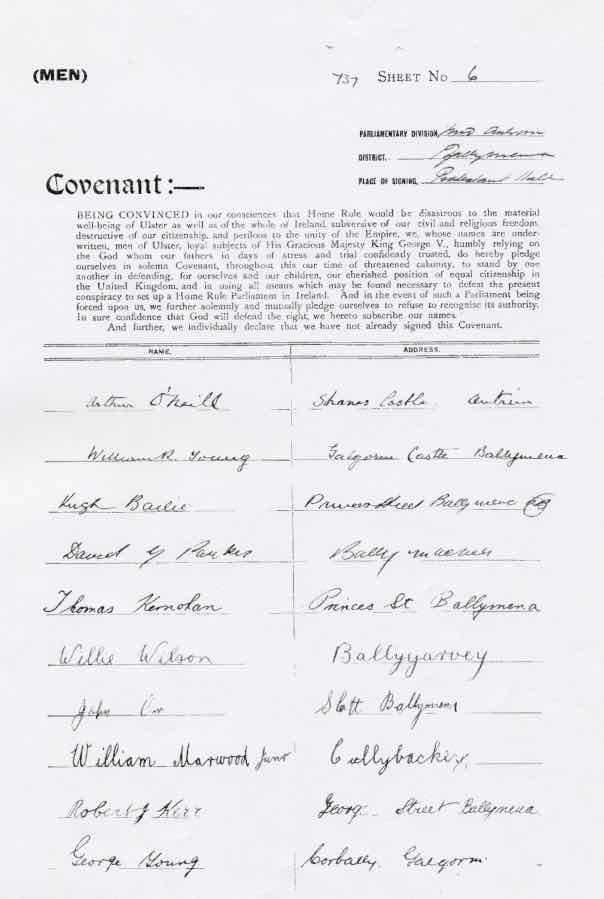 (MEN)
737 SHEET No 6
PARLIAMENTARY DIVISION, Mid Antrim
DISTRICT. Ballymena
PLACE OF SIGNING, Protestant Hall
Covenant:—
BEING CONVINCED in our consciences that Home Rule would be disastrous to the material
well-being of Ulster as well as of the whole of Ireland, subversive of our civil and religious freedom,
destructive of our citizenship, and perilous to the unity of the Empire, we, whose names are under-
written, men of Ulster, loyal subjects of His Gracious Majesty King George V., humbly relying on
the God whom our fathers in days of stress and trial confidently trusted, do hereby pledge
ourselves in solemn Covenant, throughout this our time of threatened calamity, to stand by one
another in defending, for ourselves and our children, our cherished position of equal citizenship in
the United Kingdom, and in using all means which may be found necessary to defeat the present
conspiracy to set up a Home Rule Parliament in Ireland. And in the event of such a Parliament being
forced upon us, we further solemnly and mutually pledge ourselves to refuse to recognise its authority.
In sure confidence that God will defend the right, we hereto subscribe our names.
And further, we individually declare that we have not already signed this Covenant.
NAME. ADDRESS.
Arthur O'Neill Shanes Castle. Antrim
William R. Young Galgorm Castle Ballymena
Hugh Bailie Princes Street Ballymena
David Parker
Thomas Kernohan Princes St Ballymena
Willie Wilson Ballygarvey
John Orr Ballymena
William Marwood Junr Cullybackey.
Robert J Kerr George Street Ballymena
George Young Corbally. Galgorm.